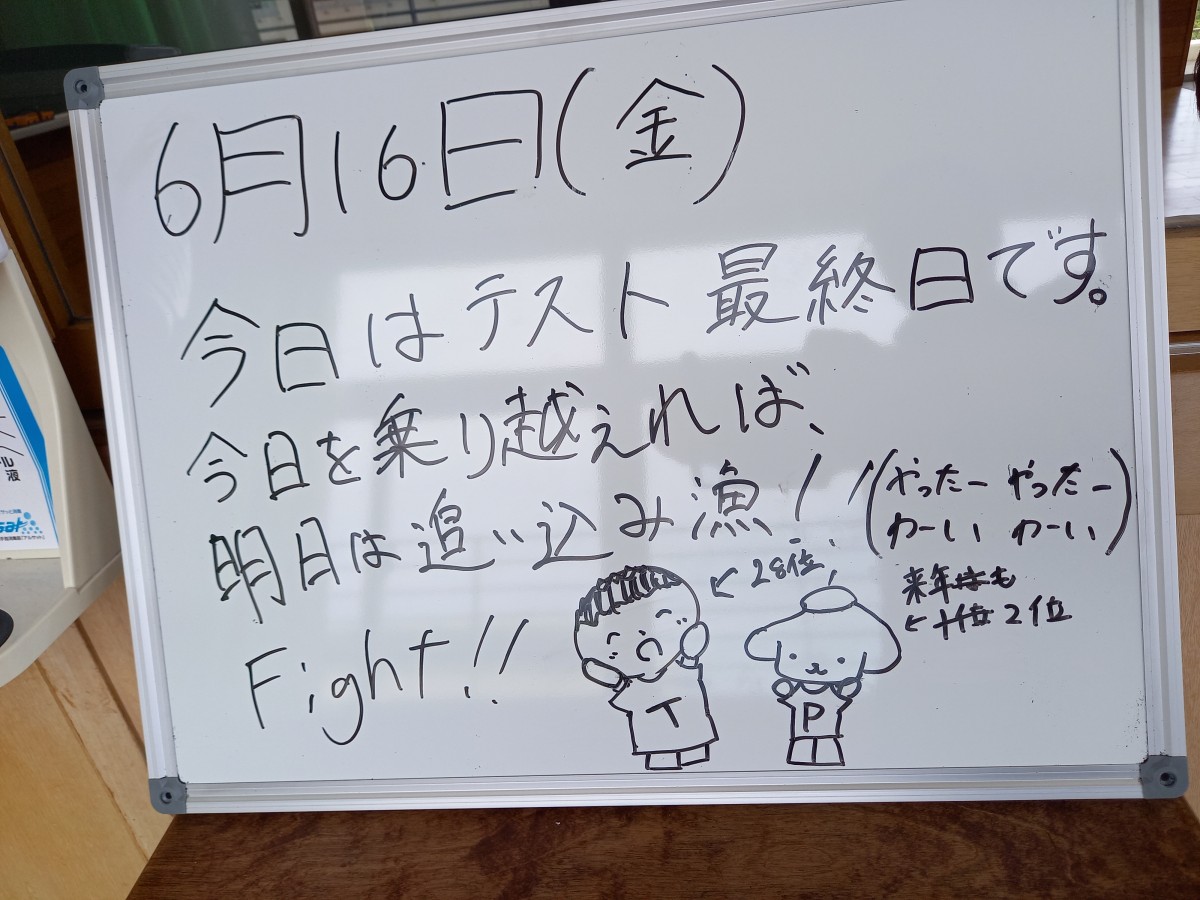 6月16日(金)
今日はテスト最終日です。
今日を乗り越えれば、
明日は追い込み漁!!
(やったー やったー
わーい わーい)
Fight!!
←28位
来年はも
←1位2位
T
P
液